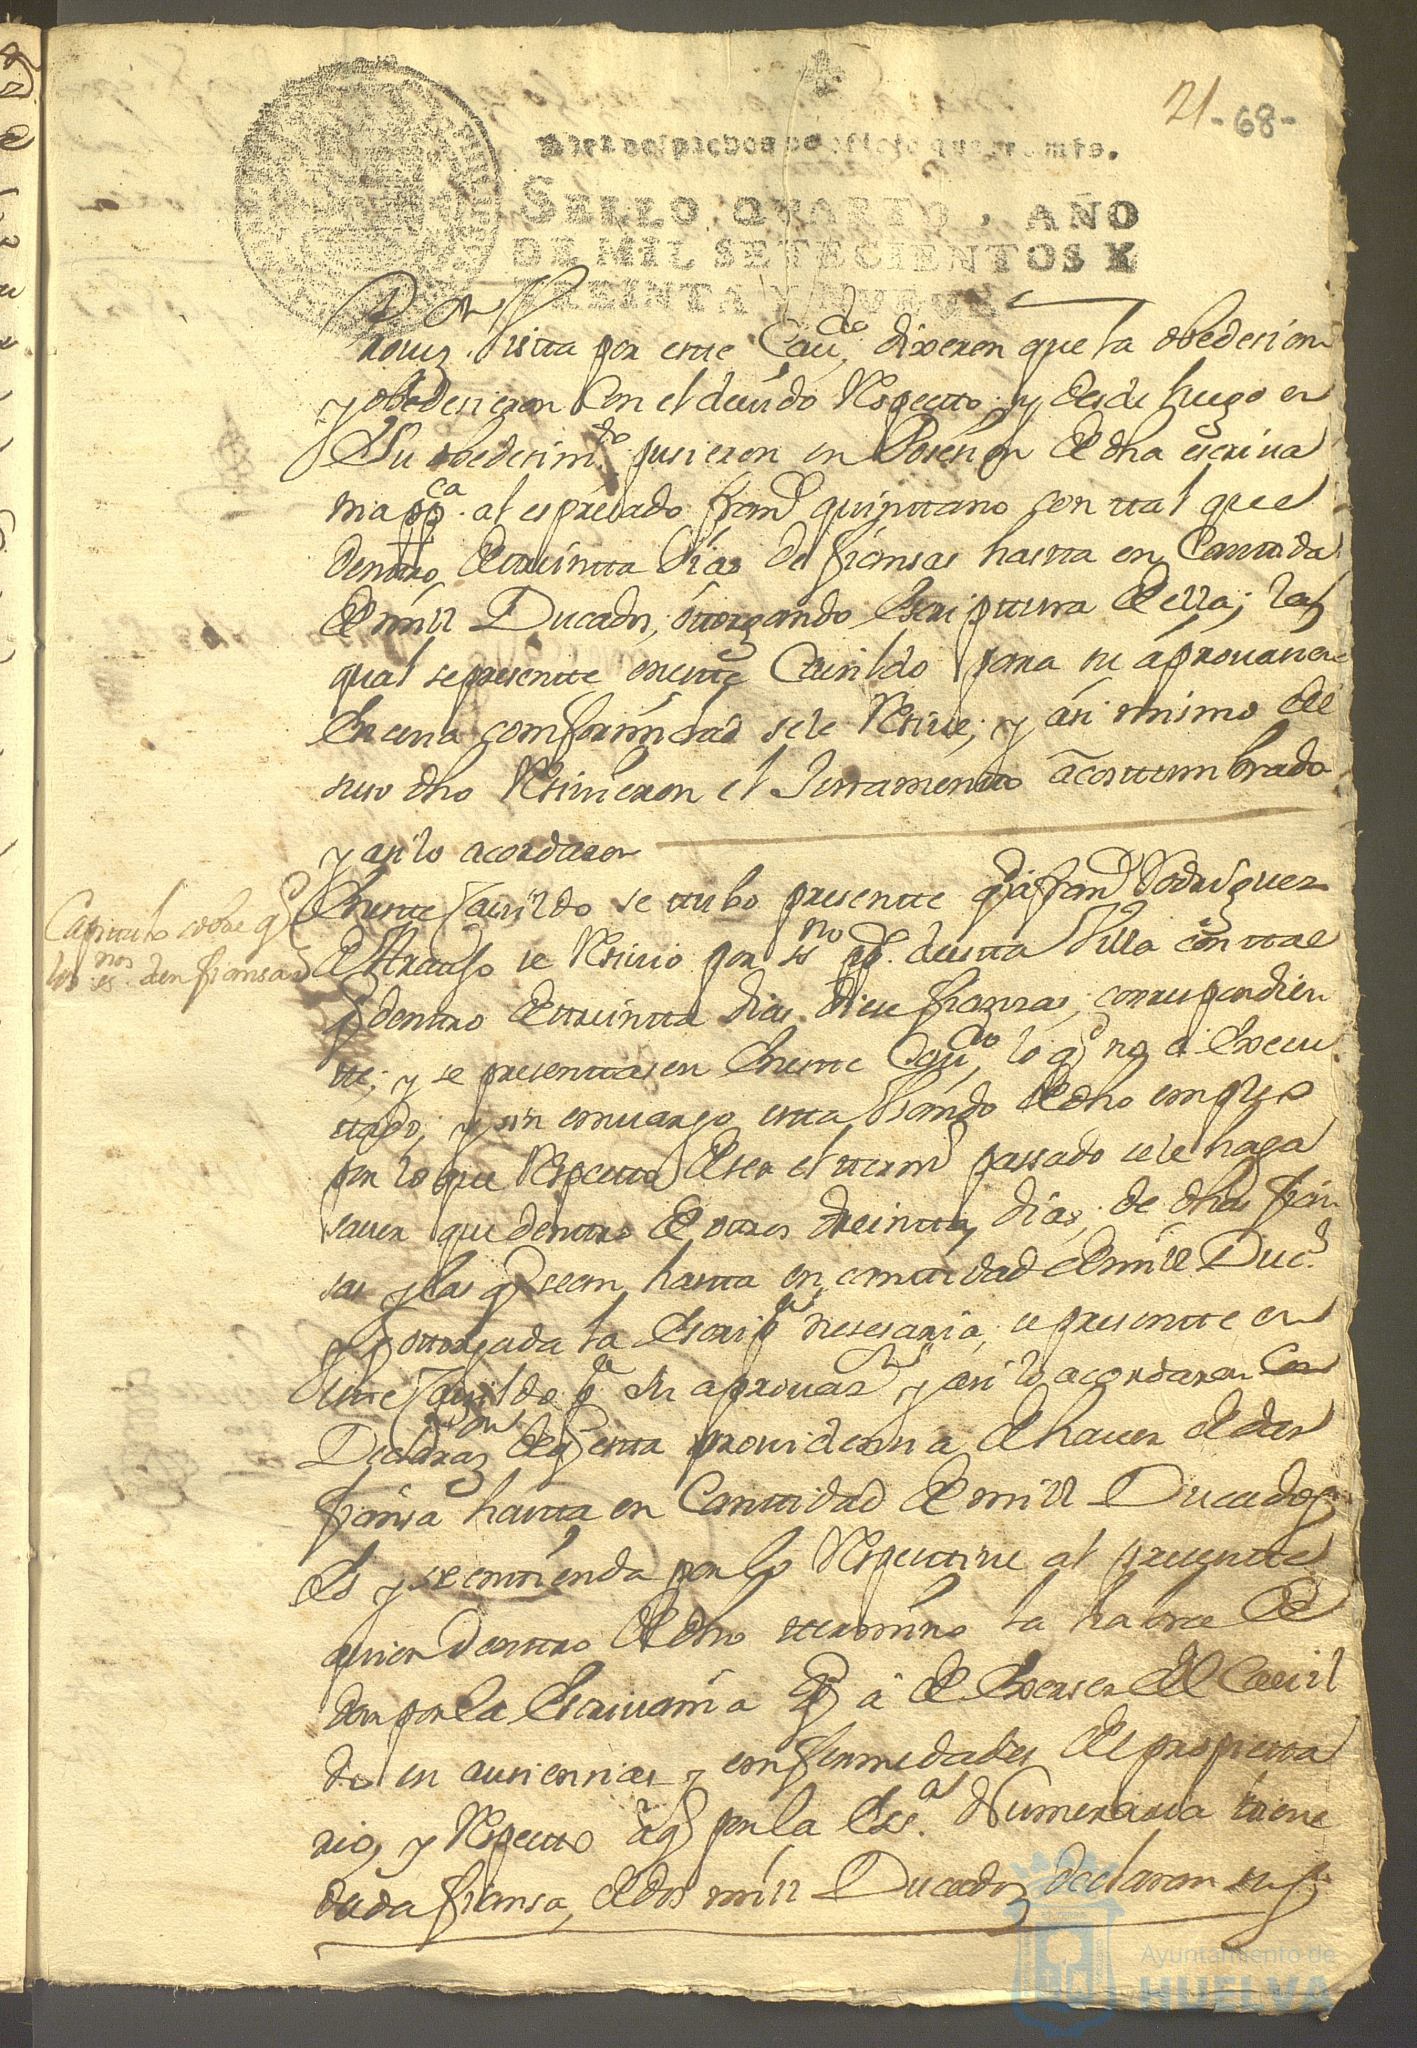 21 -68-
para despachos de oficio quatro mrs.
SELLO QVARTO, AÑO
DE MIL SETECIENTOS Y
TREINTA Y NUEVE
Vista por este Cau.do dixeron que la obedecian
y obedesieron con el deuido Respecto y desde luego en
Su obedesim.to pusieron en Posesion de dha escriua
nia pp.ca al espresado fran.co quinttano con ttal que
dentro de ttreintta dias de fiansas hasta en Canttida
de mill Ducados, ottorgando Escripttura de ella; la
qual se presentte en este Cauildo para su aprouaz.on
En cuia comformidad se le Resiue; y asi mismo del
suso dho Resiuieron el Juramentto acosttumbrado
y asi lo acordaron
Capittulo sobre q.e
los es.nos den fiansas
En este Cauildo se ttubo presentte q.e a fran.co Rodriguez
de Araujo se Resiuio por ess.no pp.co de esta Villa con ttal
q.e dentro de ttreintta dias diese fianzas, correspondien
tte; y se presenttasen En este Cau.do lo q.e no a Execu
ttado, y sin emuargo esta Vsando de dho empleo
por lo que Respectto de ser el tterm.o passado se le haga
sauer que dentro de ottros treintta dias, de dhas fian
sas y las q.e sean hasta en canttidad de mill Duc.s
y ottorgada la Escrip.ra nesesaria, se presentte en
este Cauildo p.a su aprouaz.on y asi lo acordaron Con
Declaraz.on de q.e esta prouidencia de hauer de dar
fiansa hasta en Canttidad de mill Ducados
es y se enttienda por lo Respecttiue al presentte
quien dentro de dho ttermino la ha de
dar por la Escriuania q.e a de Exerser del Cauil
do en ausiencias y emfermedades del propietta
rio, y Respectto a q.e por la Ess.a Numeraria ttiene
dada fiansa, de dos mill Ducados declaran
Ayuntamiento de
HUELVA